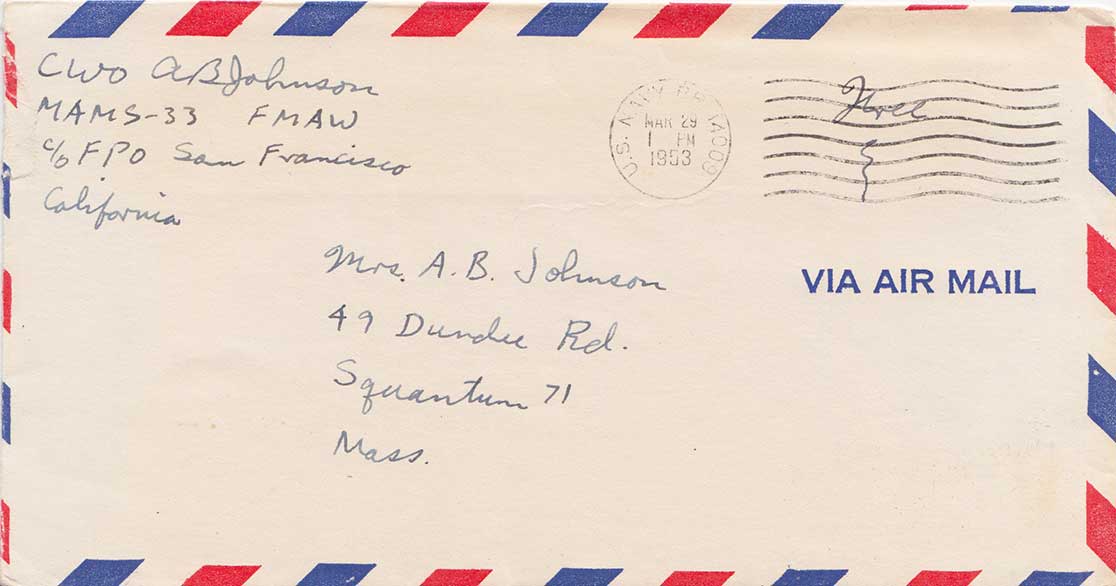 CWO A B Johnson
MAMS-33 FMAW
c/o FPO San Francisco
California
U.S. NAVY 14009
MAR 29
1 PM
1953
Free
Mrs. A. B. Johnson
49 Dundee Rd.
Squantum 71
Mass.
VIA AIR MAIL